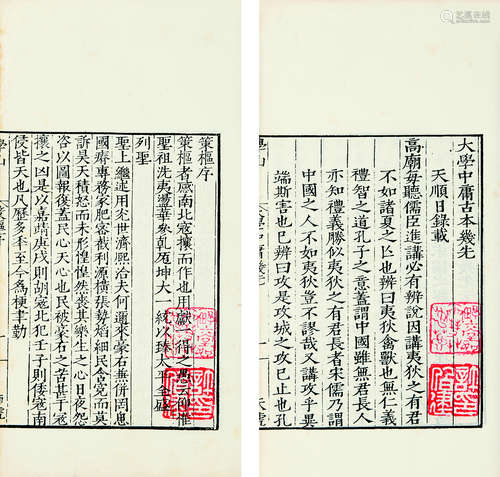 大學中庸古本幾先
天順日錄載
高廟每聽儒臣進講必有辨說因講夷狄之有君
不如諸夏之亡也辨曰夷狄禽獸也無仁義
禮智之道孔子之意蓋謂中國雖無君長人
亦知禮義勝似夷狄之有君長者宋儒乃謂
中國之人不如夷狄豈不謬哉又講攻乎異
端斯害也已辨曰攻是攻城之攻已止也孔
學山
策樞序
策樞者感南北寇攘而作也用獻一得之愚云仰惟
聖祖洗夷盪華參乾配坤大一統以臻太平至盛
列聖
聖上繼述用克世濟熙治夫何邇來豪右無併罔思
國瘠專務家肥宓裁利源橫張勢焰細民含寃而莫
訴昊天積怒而未形惶惶然喪其樂生之心日夜怨
咨以圖報復蓋民心天心也民被豪右之苦甚于寇
攘之凶是以嘉靖庚戌則胡寇北犯壬子則倭寇南
侵皆天也凡歷多率至今為梗聿勤
學山